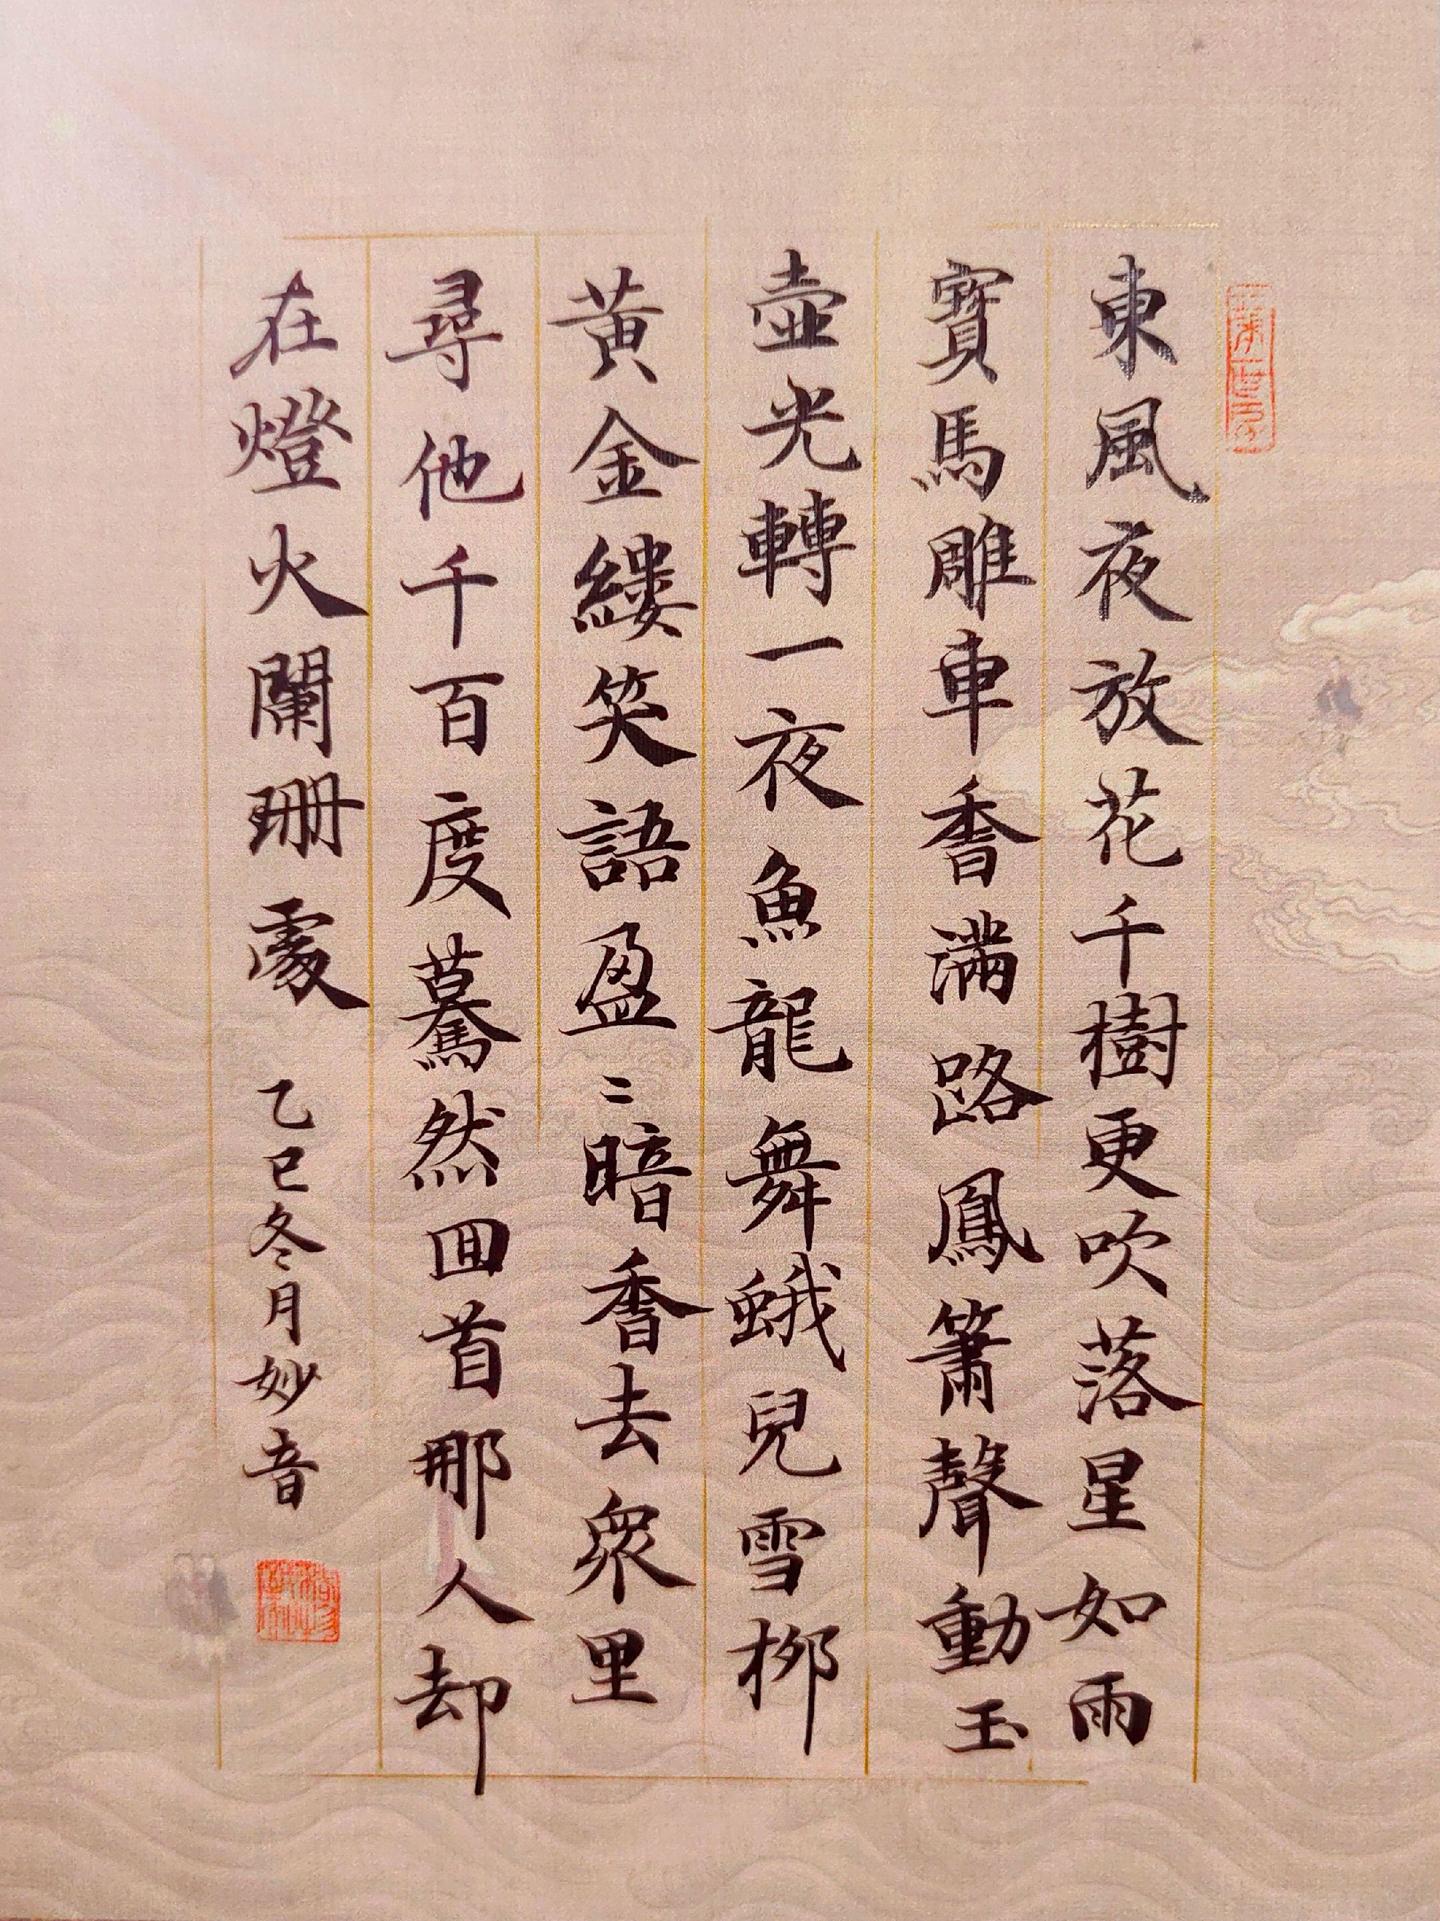 東風夜放花千樹更吹落星如雨
寶馬雕車香滿路鳳簫聲動玉
壺光轉一夜魚龍舞蛾兒雪柳
黃金縷笑語盈二暗香去衆里
尋他千百度驀然囬首那人却
在燈火闌珊處
乙巳冬月妙音